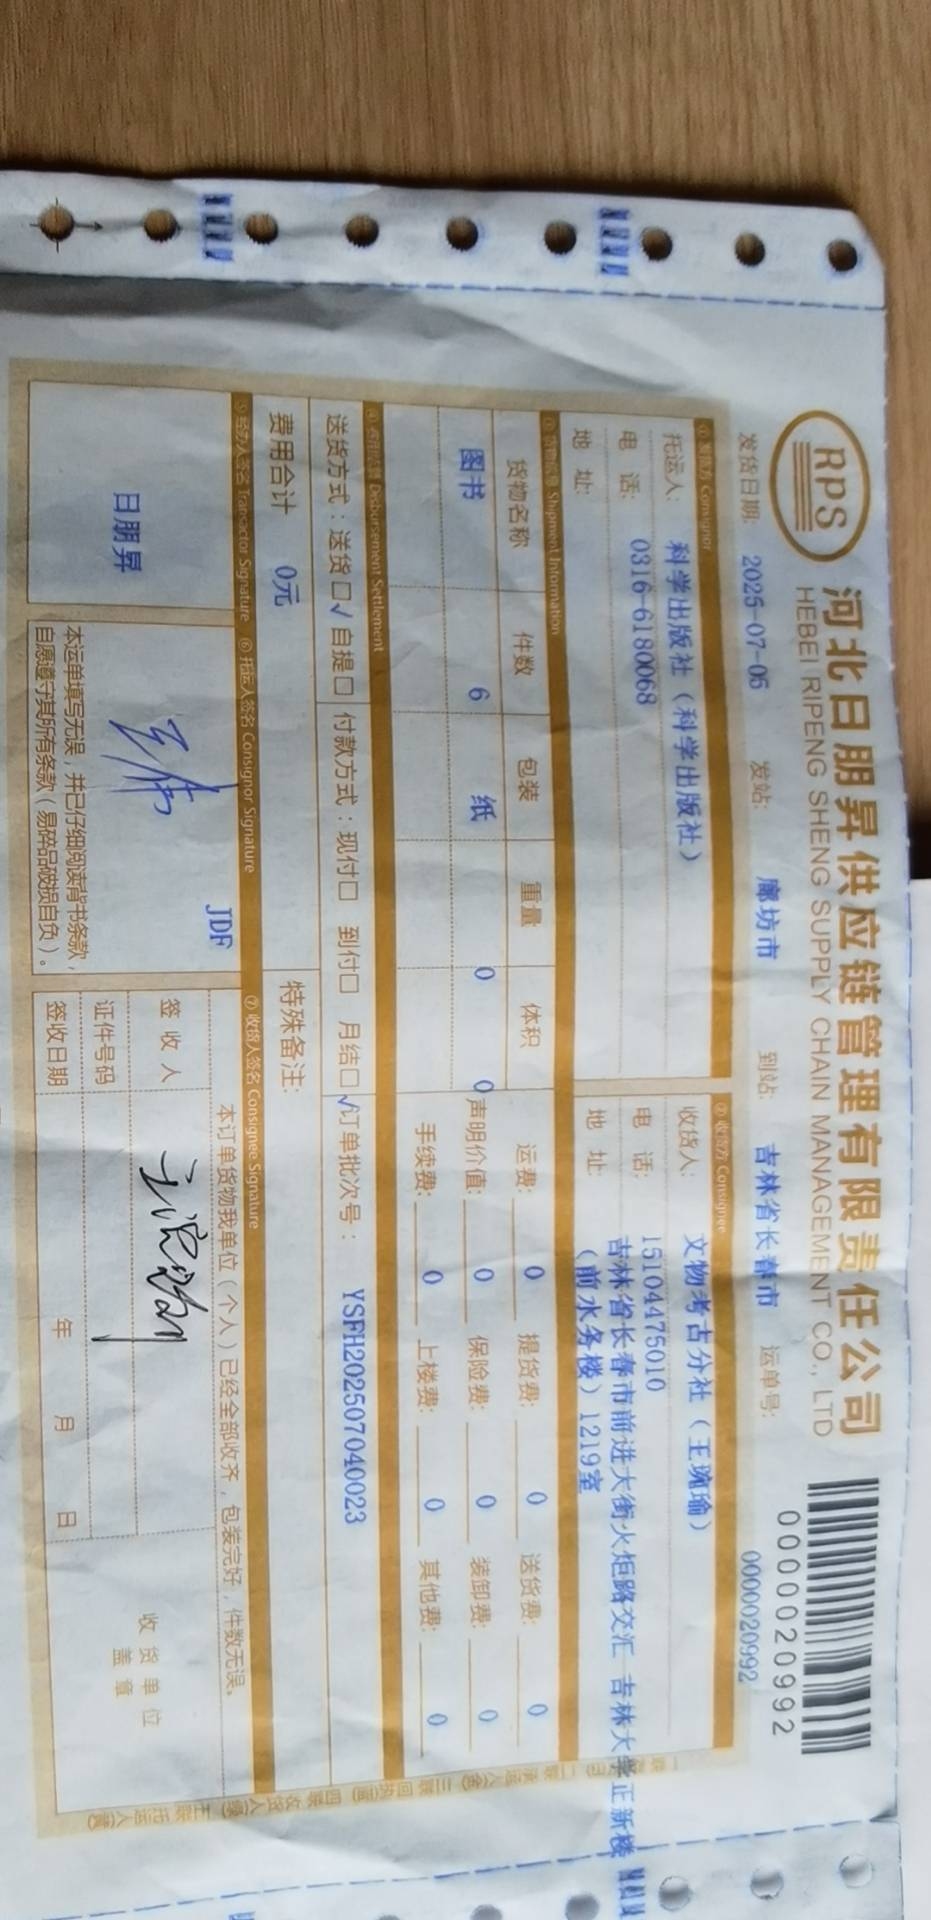 RPS
河北日朋昇供应链管理有限责任公司
HEBEI RIPENG SHENG SUPPLY CHAIN MANAGEMENT CO., LTD
0000020992
发货日期: 2025-07-05 发站: 廊坊市 到站: 吉林省长春市 运单号: 0000020992
① 发货方 Consignor
托运人: 科学出版社（科学出版社）
电 话: 0316-6180068
地 址:
② 收货方 Consignee
收货人: 文物考古分社（王琬瑜）
电 话: 15104475010
地 址: 吉林省长春市前进大街火炬路交汇 吉林大学正新楼
（前水务楼）1219室
③ 货物信息 Shipment Information
货物名称 件数 包装 重量 体积
图书 6 纸 0 0
运费: 0 提货费: 0 送货费: 0
声明价值: 0 保险费: 0 装卸费: 0
手续费: 0 上楼费: 0 其他费: 0
Disbursement Settlement
送货方式：送货□√ 自提□ 付款方式：现付□ 到付□ 月结□√ 订单批次号： YSFH202507040023
费用合计 0元 特殊备注:
⑤ 经办人签名 Transactor Signature
⑥ 托运人签名 Consignor Signature
⑦ 收货人签名 Consignee Signature
日朋昇
JDF
本运单填写无误，并已仔细阅读背书条款，
自愿遵守其所有条款（易碎品破损自负）。
本订单货物我单位（个人）已经全部收齐，包装完好，件数无误。
签 收 人
证件号码
签收日期 年 月 日
收货单位
盖 章